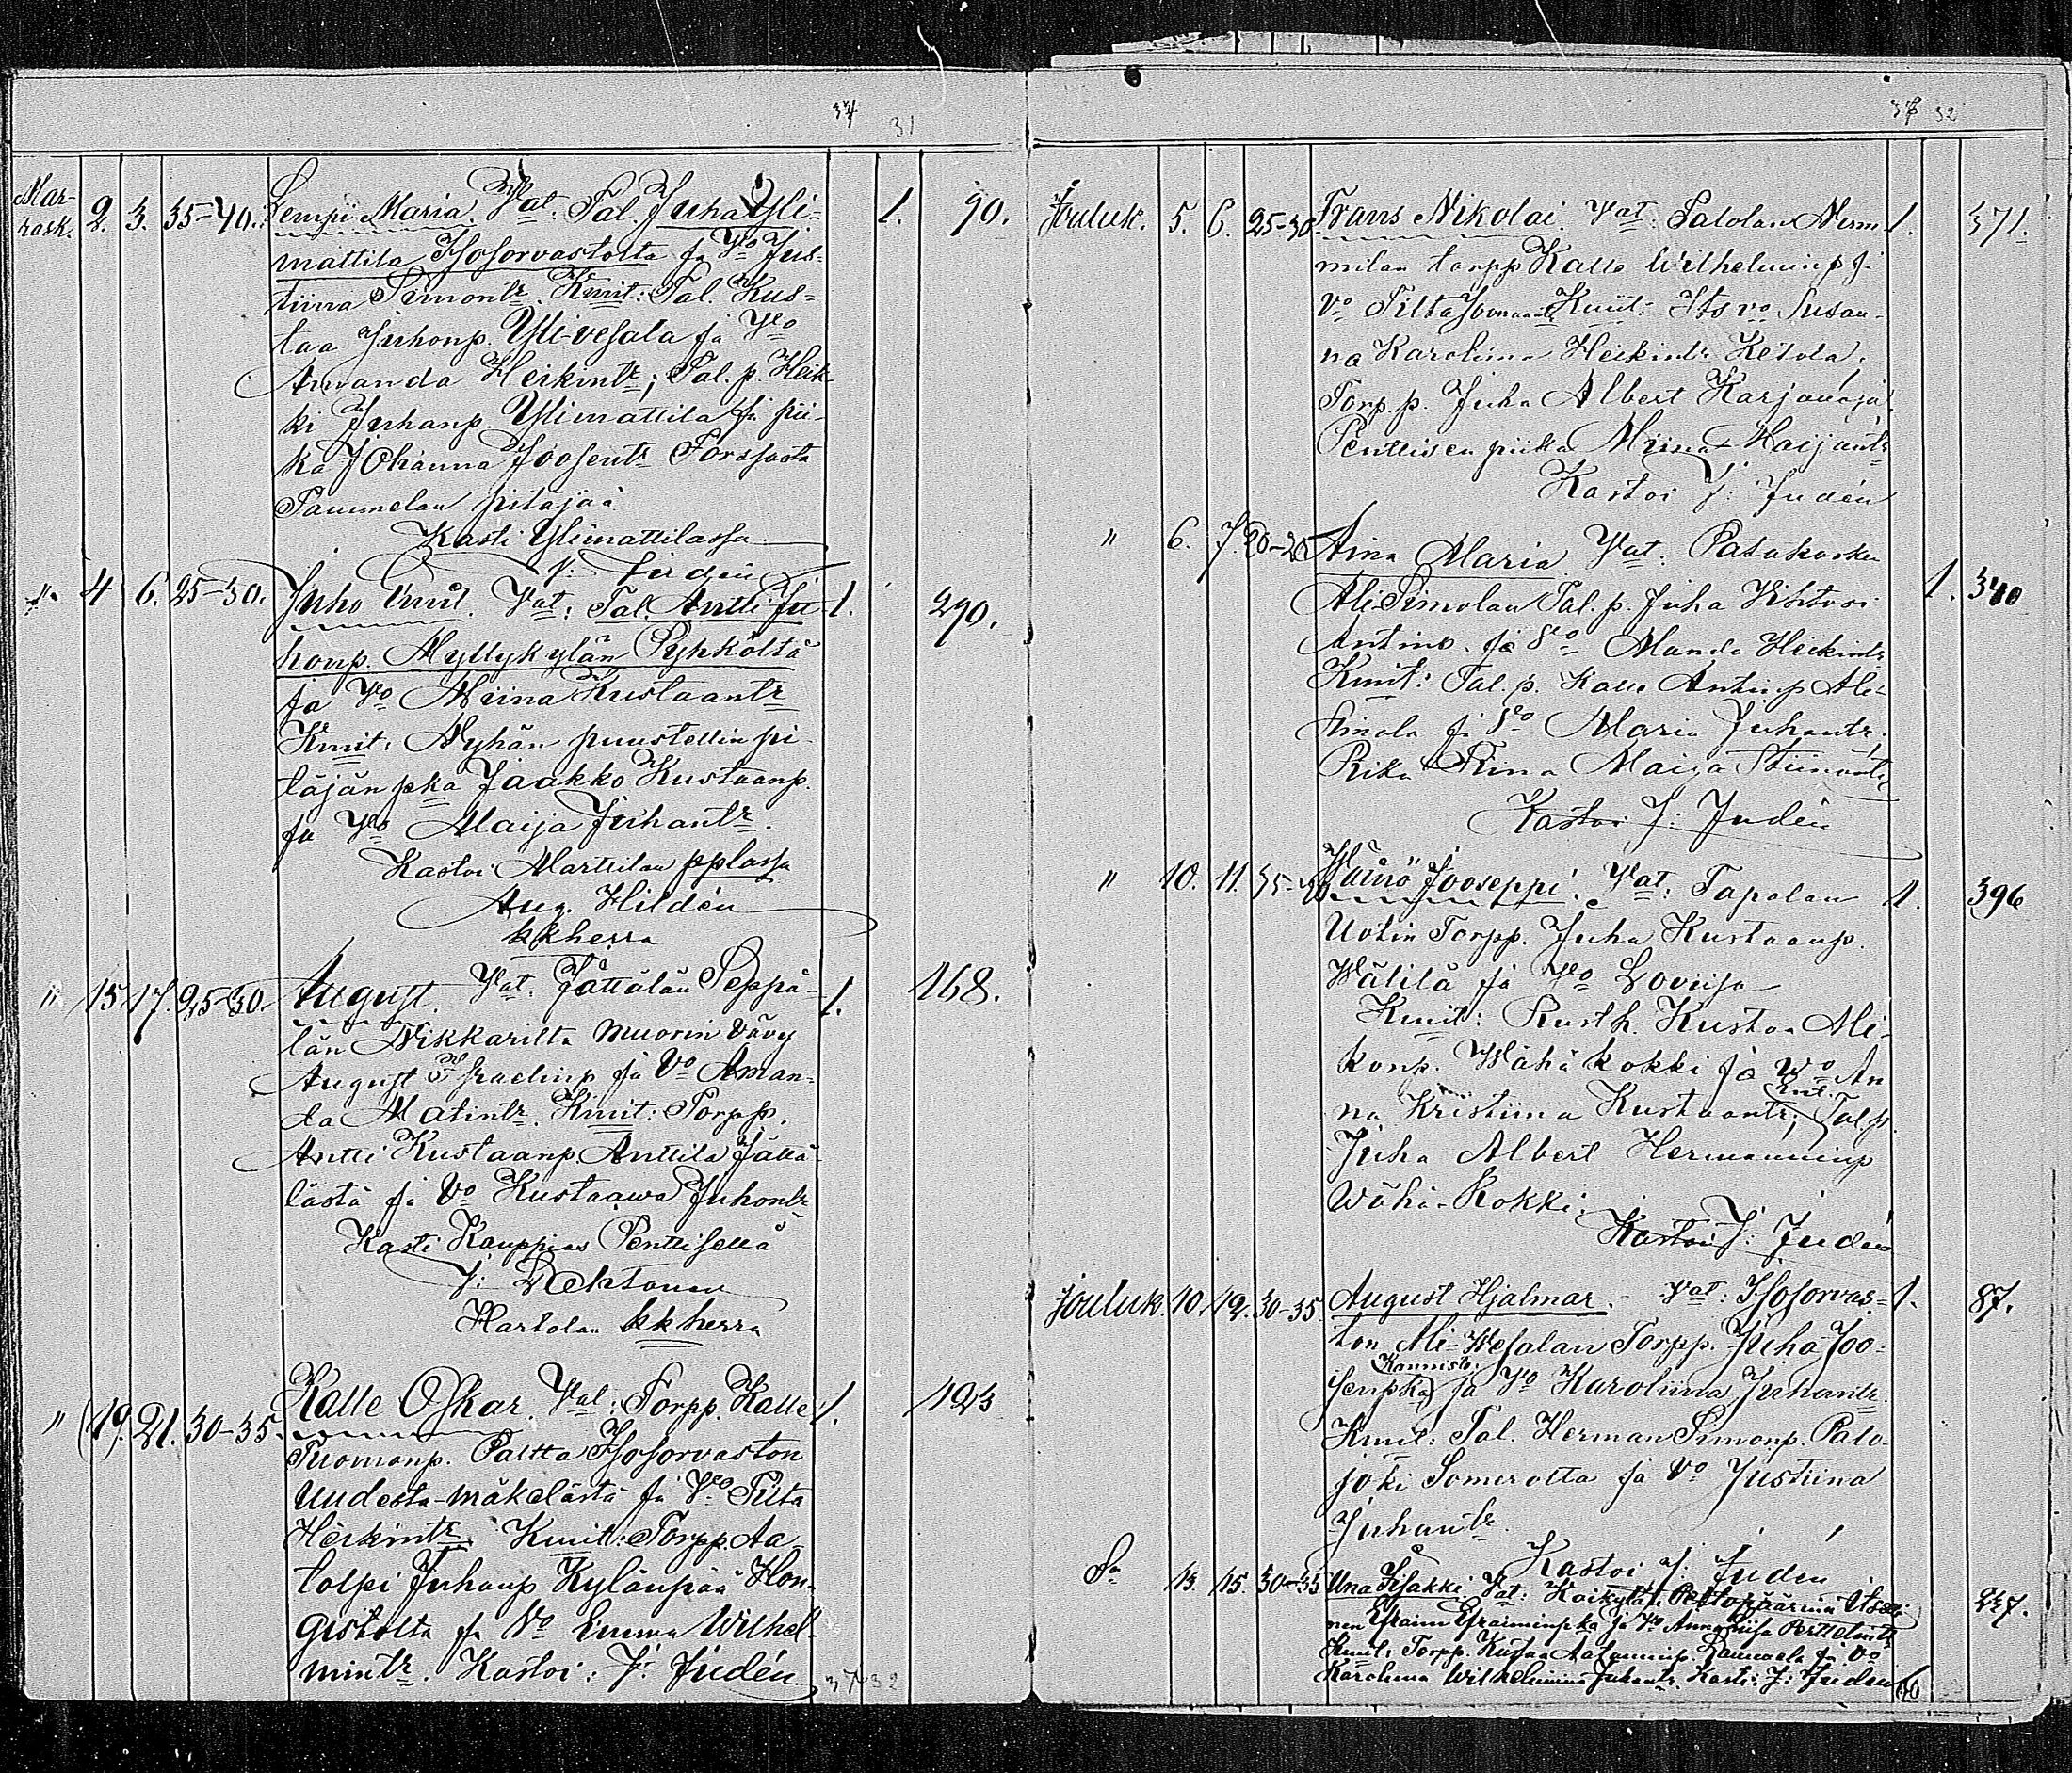 34 31
Mar-
rask. 2. 3. 35-40. Lempi Maria. Vat. Tal. Juha Yli= 1. 90.
mattila Isosorvastosta ja Vo Jus=
tiina Simontr. Kmit: Tal. Kus=
taa Juhonp. Yli-vesala ja Vo
Amanda Heikintr; Tal. p. Heik-
ki Juhanp. Ylimattila ja pii-
ka Johanna Joosentr Forssasta
Tammelan pitäjää
Kasti Ylimattilassa
" 4 6. 25-30. Juho Emil. Vat: Tal. Antti Ju- 1. 290.
honp. Myllykylän Pyhköltä
ja Vo Miina Kustaantr
Kmit: Nyhän puustellin pi-
täjän pka Jaakko Kustaanp.
ja Vo Maija Juhantr.
Kastoi Marttilan pplassa
Aug. Hildén
kkherra
" 15 17. 25-30. August. Vat. Jättälän Seppä- 1. 168.
län Nikkarilta muorin vävy
August ja Vo Aman=
da Matintr. Kmit: Torpp.
Antti Kustaanp. Anttila Jättä-
lästä ja Vo Kustaawa Juhontr
Kasti Kauppias Penttisellä
J: Rektonen
Hartolan kkherra
" 19. 21. 30-35. Kalle Oskar. Vat: Torpp. Kalle 1. 123
Tuomonp. Paltta Isosorvaston
Uudesta-mäkelästä ja Vo Tilta
Heikintr. Kmit: Torpp. Aa-
tolpi Juhanp Kylänpää Hon-
gistolta ja Vo Emma Wilhel-
mintr. Kastoi: J: Judén
32
Jouluk. 5. 6. 25-30. Frans Nikolai. Vat: Palolan Num- 1. 371.
milan torpp Kalle Wilhelminp j.
Vo Tilta Kmit: Its vo Susan-
na Karoliina Heikintr Ketola,
Torp. p. Juha Albert Karjanoja,
Penttisen piika Miina Maijantr
Kastoi J: Judén
" 6. 7. 20-25 Aina Maria. Vat: Patakosken
Ali Simolan Tal. p. Juha Vihtori 1. 340
Antinp. ja Vo Manda Heikintr
Kmit: Tal. p. Kalle Antinp Ali-
Simola ja Vo Maria Juhantr.
Piika Maija
Kastoi J: Judén
" 10. 11. 35- Wäinö Jooseppi. Vat: Tapalan 1. 396
Uotin Torpp. Juha Kustaanp.
Wälilä ja Vo Loviisa
Kmit: Rusth. Kustaa Mi-
konp. Wähä kokki ja Wo An
na Kristiina Kustaantr; Tal. p.
Juha Albert Hermanninp
Wähä-Kokki.
Kastoi J: Judén
Jouluk. 10. 12. 30-35. August Hjalmar. Vat: Isosorvas= 1. 87.
ton Ali-Wesalan Torpp. Juha Joo=
Kannisto
senpka ja Vo Karoliina Juhantr.
Kmit: Tal. Herman Simonp. Palo-
joki Somerolta ja Vo Justiina
Juhantr.
Kastoi J: Judén
So 13. 15. 30-35 Una Iisakki Vat: Koikylän Itselli 227.
nen Efraim Efraiminpka ja Vo Anna Liisa Perttelintr
Kmit: Torpp. Kustaa Aataminp. ja Vo
Karoliina Wilhelmiina Juhantr. Kasti: J: Judén